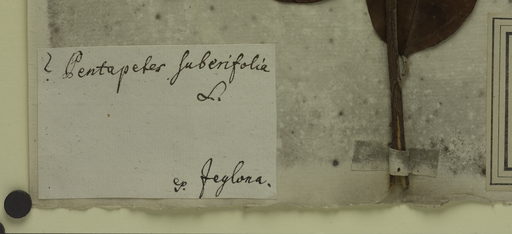 ? Pentapetes suberifolia
L.
e. Zeylona.